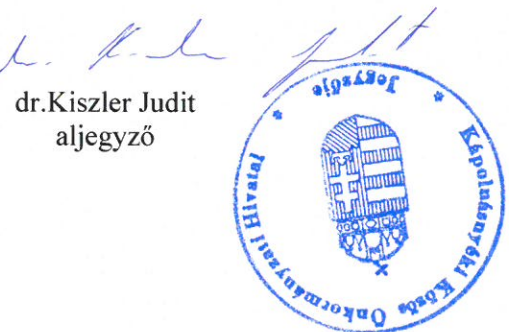 dr. Kiszler Judit
dr.Kiszler Judit
aljegyző
Kápolnásnyéki Közös Önkormányzati Hivatal
* Jegyzője *